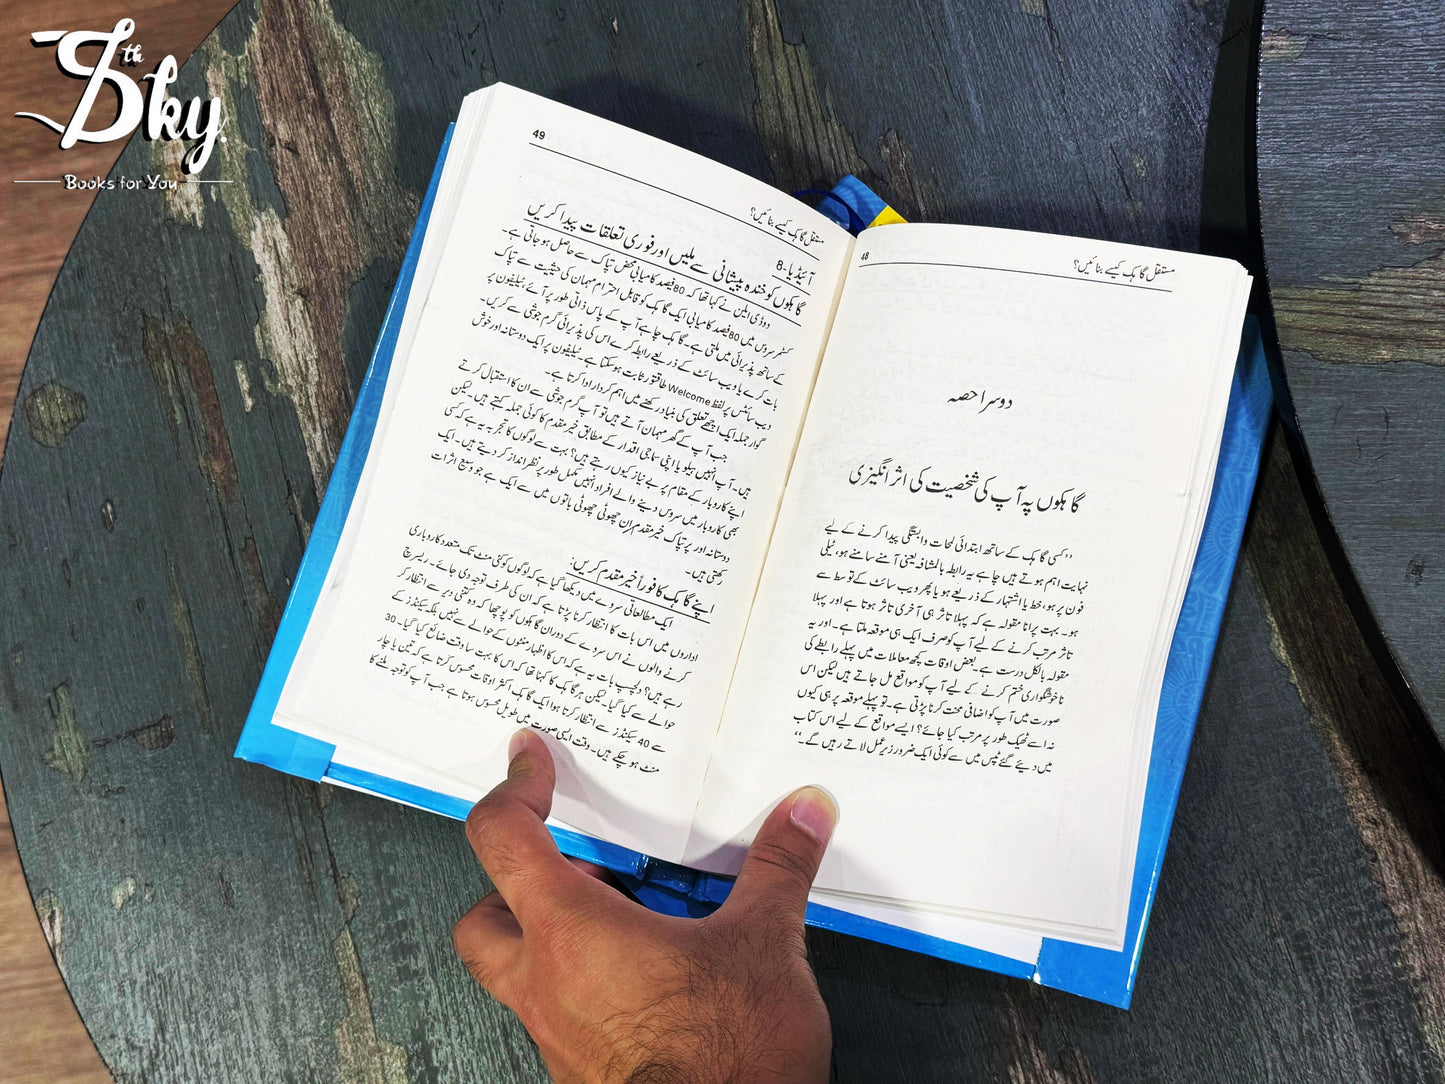 Sky th
Books for You
48
مستقل گاہک کیسے بنائیں؟
دوسرا حصہ
گاہکوں پہ آپ کی شخصیت کی اثر انگیزی
”کسی گاہک کے ساتھ ابتدائی لمحات وابستگی پیدا کرنے کے لیے
نہایت اہم ہوتے ہیں چاہے یہ رابطہ بالمشافہ یعنی آمنے سامنے ہو، ٹیلی
فون پر ہو، خط یا اشتہار کے ذریعے ہو یا پھر ویب سائٹ کے توسط سے
ہو۔ بہت پرانا مقولہ ہے کہ پہلا تاثر ہی آخری تاثر ہوتا ہے اور پہلا
تاثر مرتب کرنے کے لیے آپ کو صرف ایک ہی موقعہ ملتا ہے۔ اور یہ
مقولہ بالکل درست ہے۔ بعض اوقات کچھ معاملات میں پہلے رابطے کی
ناخوشگواری ختم کرنے کے لیے آپ کو مواقع مل جاتے ہیں لیکن اس
صورت میں آپ کو اضافی محنت کرنا پڑتی ہے۔ تو پہلے موقعہ پر ہی کیوں
نہ اسے ٹھیک طور پر مرتب کیا جائے؟ ایسے مواقع کے لیے اس کتاب
میں دیئے گئے ٹپس میں سے کوئی ایک ضرور زیرِ عمل لاتے رہیں گے۔“
49
مستقل گاہک کیسے بنائیں؟
آئیڈیا-8
گاہکوں کو خندہ پیشانی سے ملیں اور فوری تعلقات پیدا کریں
ووڈی ایلن نے کہا تھا کہ 80 فیصد کامیابی محض تپاک سے حاصل ہو جاتی ہے۔
کسٹمر سروس میں 80 فیصد کامیابی ایک گاہک کو قابل احترام مہمان کی حیثیت سے تپاک
کے ساتھ پذیرائی میں ملتی ہے۔ گاہک چاہے آپ کے پاس ذاتی طور پر آئے، ٹیلیفون پر
بات کرے یا ویب سائٹ کے ذریعے رابطہ کرے اس کی پذیرائی گرم جوشی سے کریں۔
ویب سائٹس پر لفظ Welcome طاقتور ثابت ہو سکتا ہے۔ ٹیلیفون پر ایک دوستانہ اور خوش
گوار جملہ ایک اچھے تعلق کی بنیاد رکھنے میں اہم کردار ادا کرتا ہے۔
جب آپ کے گھر مہمان آتے ہیں تو آپ گرم جوشی سے ان کا استقبال کرتے
ہیں۔ آپ انہیں ہیلو یا اپنی سماجی اقدار کے مطابق خیر مقدم کا کوئی جملہ کہتے ہیں۔ لیکن
اپنے کاروبار کے مقام پر بے نیاز کیوں رہتے ہیں؟ بہت سے لوگوں کا تجربہ یہ ہے کہ کسی
بھی کاروبار میں سروس دینے والے افراد انہیں مکمل طور پر نظر انداز کر دیتے ہیں۔ ایک
دوستانہ اور پر تپاک خیر مقدم ان چھوٹی چھوٹی باتوں میں سے ایک ہے جو وسیع اثرات
رکھتی ہیں۔
اپنے گاہک کا فوراً خیر مقدم کریں:
ایک مطالعاتی سروے میں دیکھا گیا ہے کہ لوگوں کو کئی منٹ تک متعدد کاروباری
اداروں میں اس بات کا انتظار کرنا پڑتا ہے کہ ان کی طرف توجہ دی جائے۔ ریسرچ
کرنے والوں نے اس سروے کے دوران گاہکوں کو پوچھا کہ وہ کتنی دیر سے انتظار کر
رہے ہیں؟ دلچسپ بات یہ ہے کہ اس کا اظہار منٹوں کے حوالے سے نہیں بلکہ سیکنڈز کے
حوالے سے کیا گیا۔ لیکن ہر گاہک کا کہنا تھا کہ اس کا بہت سا وقت ضائع کیا گیا۔ 30
سے 40 سیکنڈز سے انتظار کرتا ہوا ایک گاہک اکثر اوقات محسوس کرتا ہے کہ تین یا چار
منٹ ہو چکے ہیں۔ وقت ایسی صورت میں طویل محسوس ہوتا ہے جب آپ کو توجہ ملنے کا